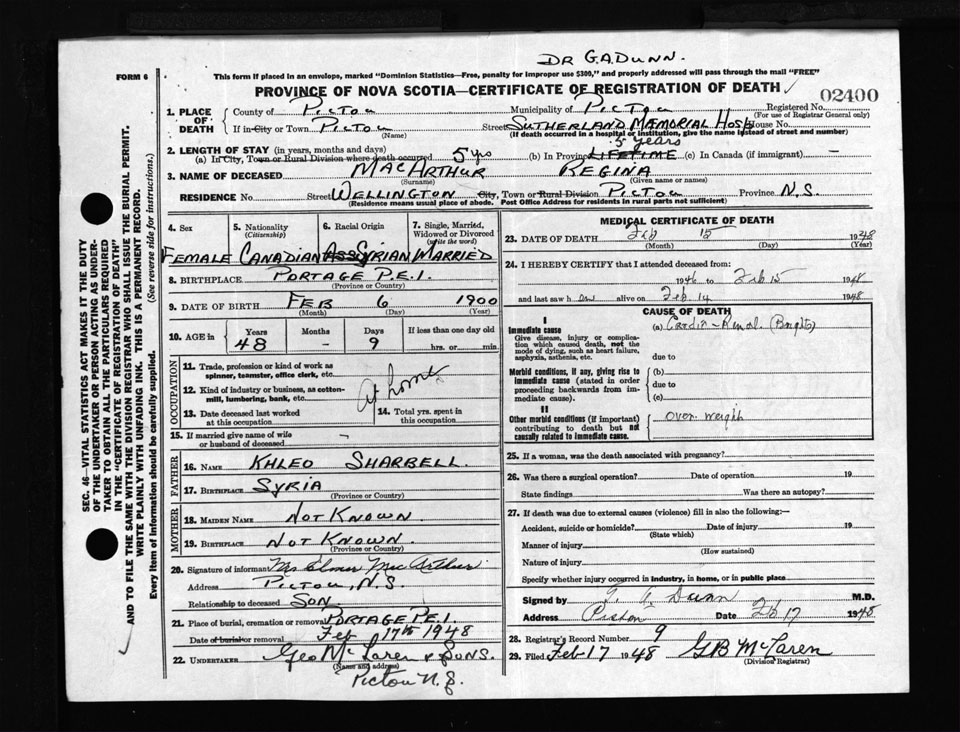 DR G.A. DUNN.
FORM 6
This form if placed in an envelope, marked "Dominion Statistics—Free, penalty for improper use $300," and properly addressed will pass through the mail "FREE"
PROVINCE OF NOVA SCOTIA—CERTIFICATE OF REGISTRATION OF DEATH
02400
1. PLACE OF DEATH
County of PICTOU Municipality of PICTOU Registered No.
(For use of Registrar General only)
If in City or Town PICTOU Street SUTHERLAND MEMORIAL HOSP House No
(Name) (If death occurred in a hospital or institution, give the name instead of street and number)
2. LENGTH OF STAY (in years, months and days)
5 years
(a) In City, Town or Rural Division where death occurred 5 yrs (b) In Province LIFETIME (c) In Canada (if immigrant) —
3. NAME OF DECEASED MACARTHUR REGINA
(Surname) (Given name or names)
RESIDENCE No Street WELLINGTON City, Town or Rural Division PICTOU Province N.S.
(Residence means usual place of abode. Post Office Address for residents in rural parts not sufficient)
4. Sex 5. Nationality (Citizenship) 6. Racial Origin 7. Single, Married, Widowed or Divorced (write the word)
FEMALE CANADIAN ASSYRIAN MARRIED
8. BIRTHPLACE PORTAGE P.E.I.
(Province or Country)
9. DATE OF BIRTH FEB 6 1900
(Month) (Day) (Year)
10. AGE in Years Months Days If less than one day old
48 — 9 hrs. or min.
OCCUPATION
11. Trade, profession or kind of work as spinner, teamster, office clerk, etc.
12. Kind of industry or business, as cotton-mill, lumbering, bank, etc.
At home
13. Date deceased last worked at this occupation
14. Total yrs. spent in this occupation
15. If married give name of wife or husband of deceased —
FATHER
16. NAME KHLEO SHARBELL.
17. BIRTHPLACE SYRIA
(Province or Country)
MOTHER
18. MAIDEN NAME NOT KNOWN.
19. BIRTHPLACE NOT KNOWN.
(Province or Country)
20. Signature of informant Mr Elmer MacArthur
Address PICTOU, N.S.
Relationship to deceased SON
21. Place of burial, cremation or removal PORTAGE P.E.I.
Date of burial or removal Feb 17th 1948
22. UNDERTAKER Geo McLaren & Sons.
(Name and address)
Pictou N.S.
MEDICAL CERTIFICATE OF DEATH
23. DATE OF DEATH Feb 15 1948
(Month) (Day) (Year)
24. I HEREBY CERTIFY that I attended deceased from:
1946 to Feb 15 1948
and last saw h er alive on Feb. 14 1948
CAUSE OF DEATH
I
Immediate cause (a) Cardio-Renal. (Brights)
Give disease, injury or complication which caused death, not the mode of dying, such as heart failure, asphyxia, asthenia, etc.
due to
Morbid conditions, if any, giving rise to immediate cause (stated in order proceeding backwards from immediate cause).
(b)
due to
(c)
II
Other morbid conditions (if important) contributing to death but not causally related to immediate cause.
Over weight
25. If a woman, was the death associated with pregnancy?
26. Was there a surgical operation? Date of operation 19
State findings Was there an autopsy?
27. If death was due to external causes (violence) fill in also the following:—
Accident, suicide or homicide? Date of injury 19
(State which)
Manner of injury
(How sustained)
Nature of injury
Specify whether injury occurred in industry, in home, or in public place
Signed by G A Dunn M.D.
Address Pictou Date Feb 17 1948
28. Registrar's Record Number 9
29. Filed Feb 17 1948 GB McLaren
(Division Registrar)
SEC. 46—VITAL STATISTICS ACT MAKES IT THE DUTY
OF THE UNDERTAKER OR PERSON ACTING AS UNDER-
TAKER TO OBTAIN ALL THE PARTICULARS REQUIRED
IN THE "CERTIFICATE OF REGISTRATION OF DEATH"
AND TO FILE THE SAME WITH THE DIVISION REGISTRAR WHO SHALL ISSUE THE BURIAL PERMIT.
WRITE PLAINLY WITH UNFADING INK. THIS IS A PERMANENT RECORD.
Every item of information should be carefully supplied. (See reverse side for instructions.)